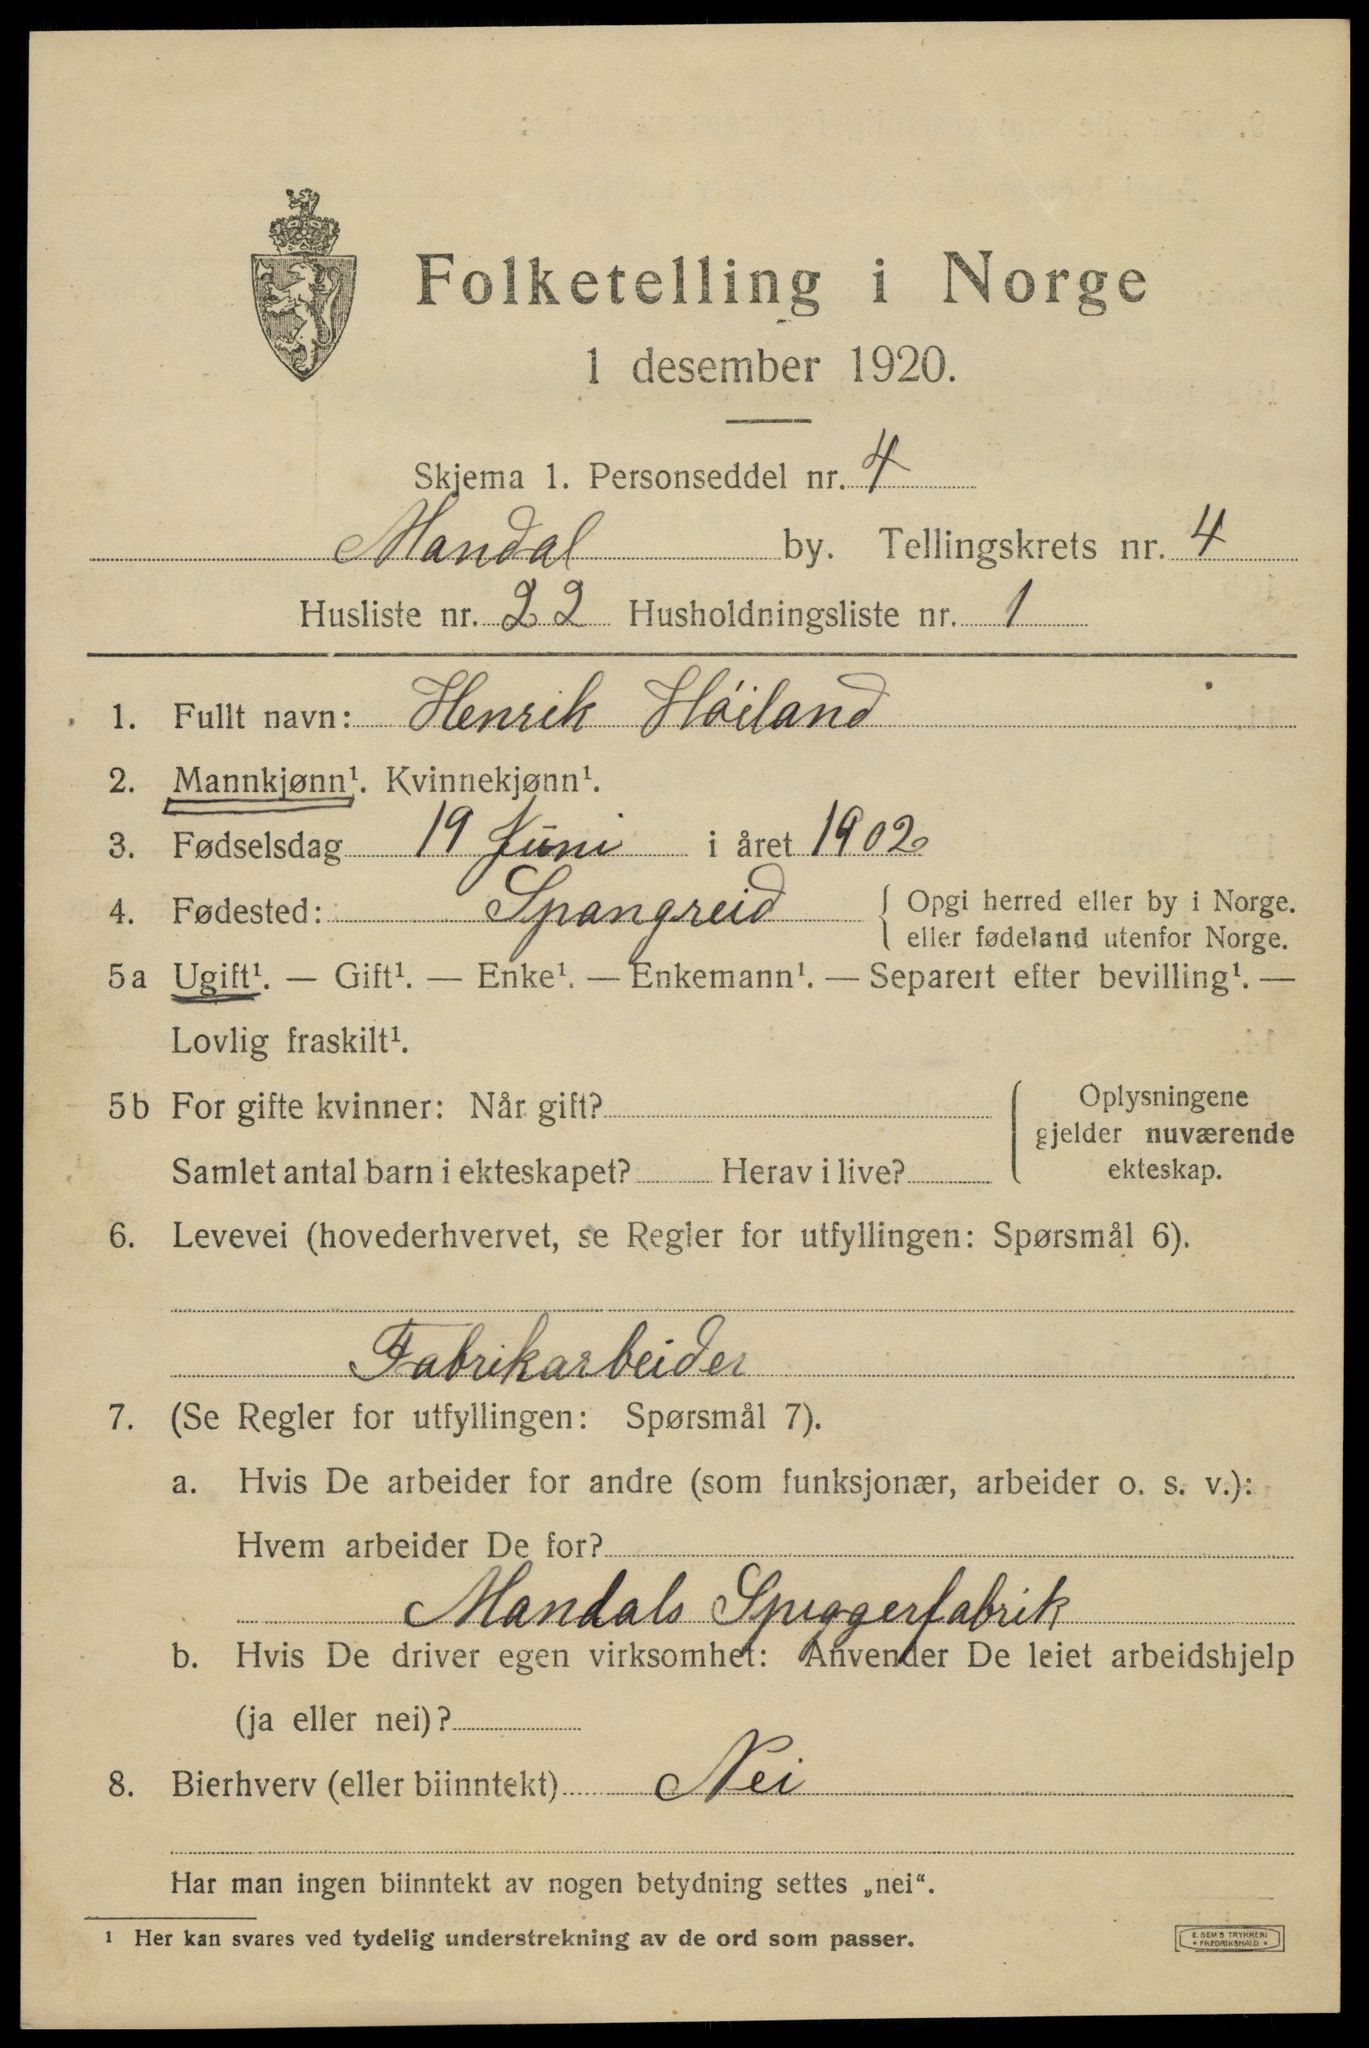 Folketelling i Norge
1 desember 1920.
Skjema 1. Personseddel nr. 4
Mandal by. Tellingskrets nr. 4
Husliste nr. 22 Husholdningsliste nr. 1
1. Fullt navn: Henrik Höiland
2. Mannkjønn¹. Kvinnekjønn¹.
3. Fødselsdag 19 Juni i året 1902
4. Fødested: Spangreid { Opgi herred eller by i Norge.
eller fødeland utenfor Norge.
5a Ugift¹. — Gift¹. — Enke¹. — Enkemann¹. — Separert efter bevilling¹. —
Lovlig fraskilt¹.
5b For gifte kvinner: Når gift?
Samlet antal barn i ekteskapet? Herav i live?
Oplysningene
gjelder nuværende
ekteskap.
6. Levevei (hovederhvervet, se Regler for utfyllingen: Spørsmål 6).
Fabrikarbeider
7. (Se Regler for utfyllingen: Spørsmål 7).
a. Hvis De arbeider for andre (som funksjonær, arbeider o. s. v.):
Hvem arbeider De for?
Mandals Spiggerfabrik
b. Hvis De driver egen virksomhet: Anvender De leiet arbeidshjelp
(ja eller nei)?
8. Bierhverv (eller biinntekt) Nei
Har man ingen biinntekt av nogen betydning settes „nei“.
¹ Her kan svares ved tydelig understrekning av de ord som passer.
E. SEM'S TRYKKERI
• FREDRIKSHALD •